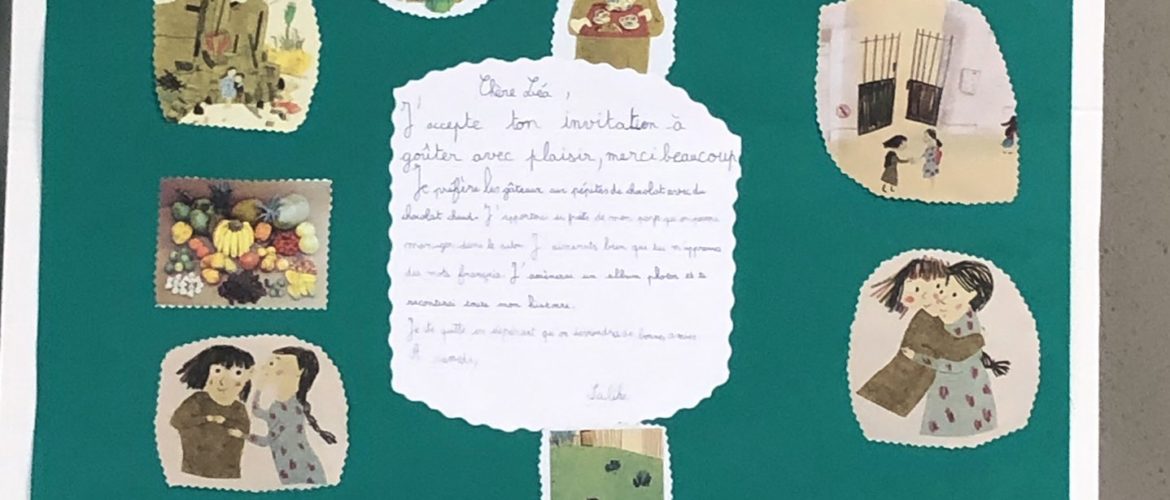 Chère Léa,
J'accepte ton invitation à
goûter avec plaisir, merci beaucoup
Je préfère les gâteaux aux pépites de chocolat avec du
chocolat chaud. J'apporterai des fruits de mon pays qu'on pourra
manger dans le salon. J'aimerais bien que tu m'apprennes
des mots français. J'amènerai un album photos et te
raconterai toute mon histoire.
Je te quitte en espérant qu'on deviendra de bonnes amies
À samedi,